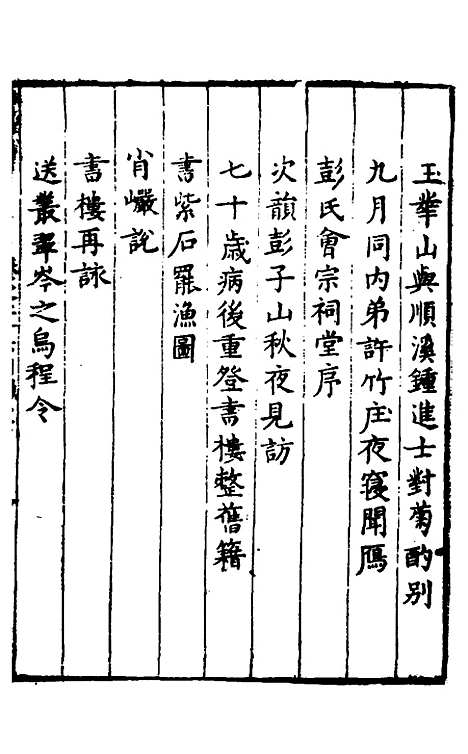 玉華山與順溪鍾進士對菊酌別
九月同内弟許竹庄夜寝聞鴈
彭氏會宗祠堂序
次韻彭子山秋夜見訪
七十歲病後重登書樓整舊籍
書紫石罷漁圖
肖巘說
書樓再詠
送叢翠岑之烏程令